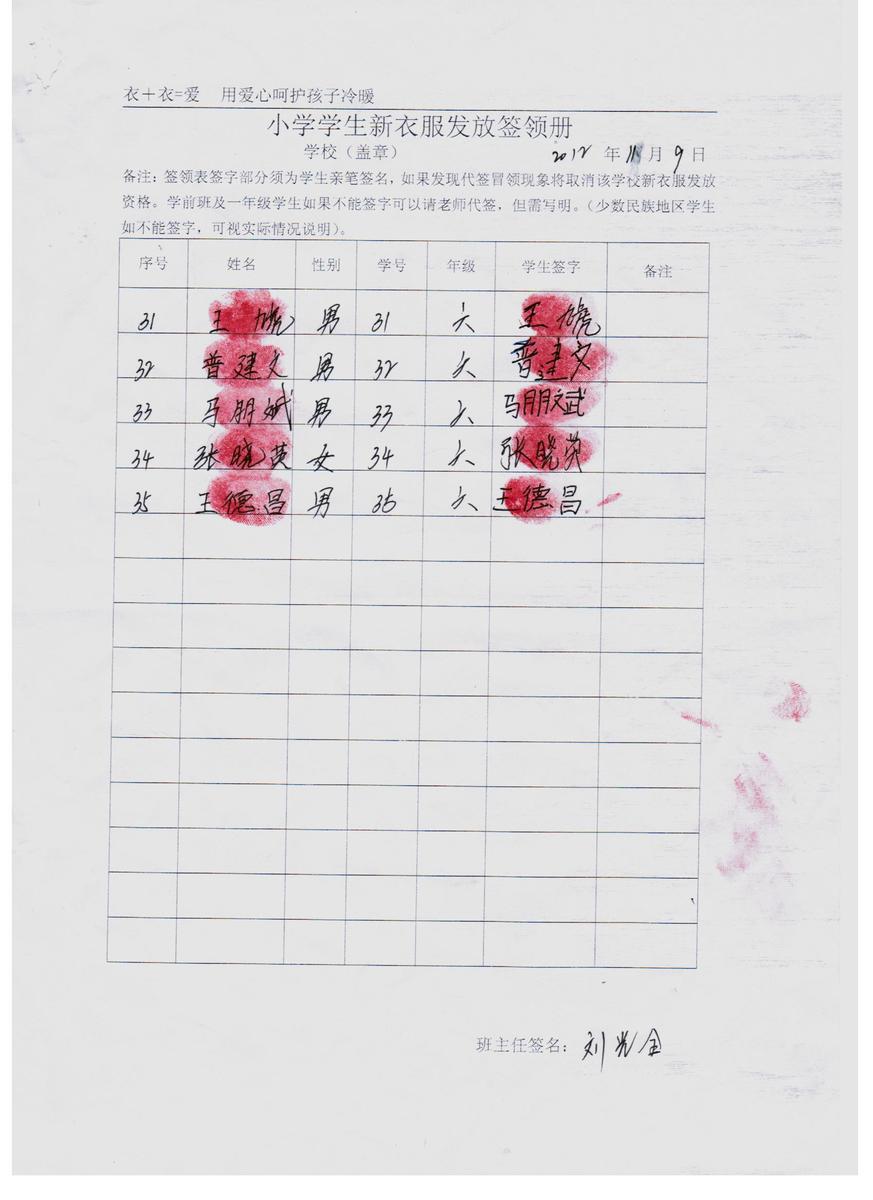 衣＋衣=爱 用爱心呵护孩子冷暖
小学学生新衣服发放签领册
学校（盖章） 2012 年 11 月 9 日
备注：签领表签字部分须为学生亲笔签名，如果发现代签冒领现象将取消该学校新衣服发放
资格。学前班及一年级学生如果不能签字可以请老师代签，但需写明。（少数民族地区学生
如不能签字，可视实际情况说明）。
序号 姓名 性别 学号 年级 学生签字 备注
31 王虓 男 31 六 王虓
32 普建文 男 32 六 普建文
33 马朋斌 男 33 六 马朋斌
34 张晓英 女 34 六 张晓英
35 王德昌 男 35 六 王德昌
班主任签名：刘光全